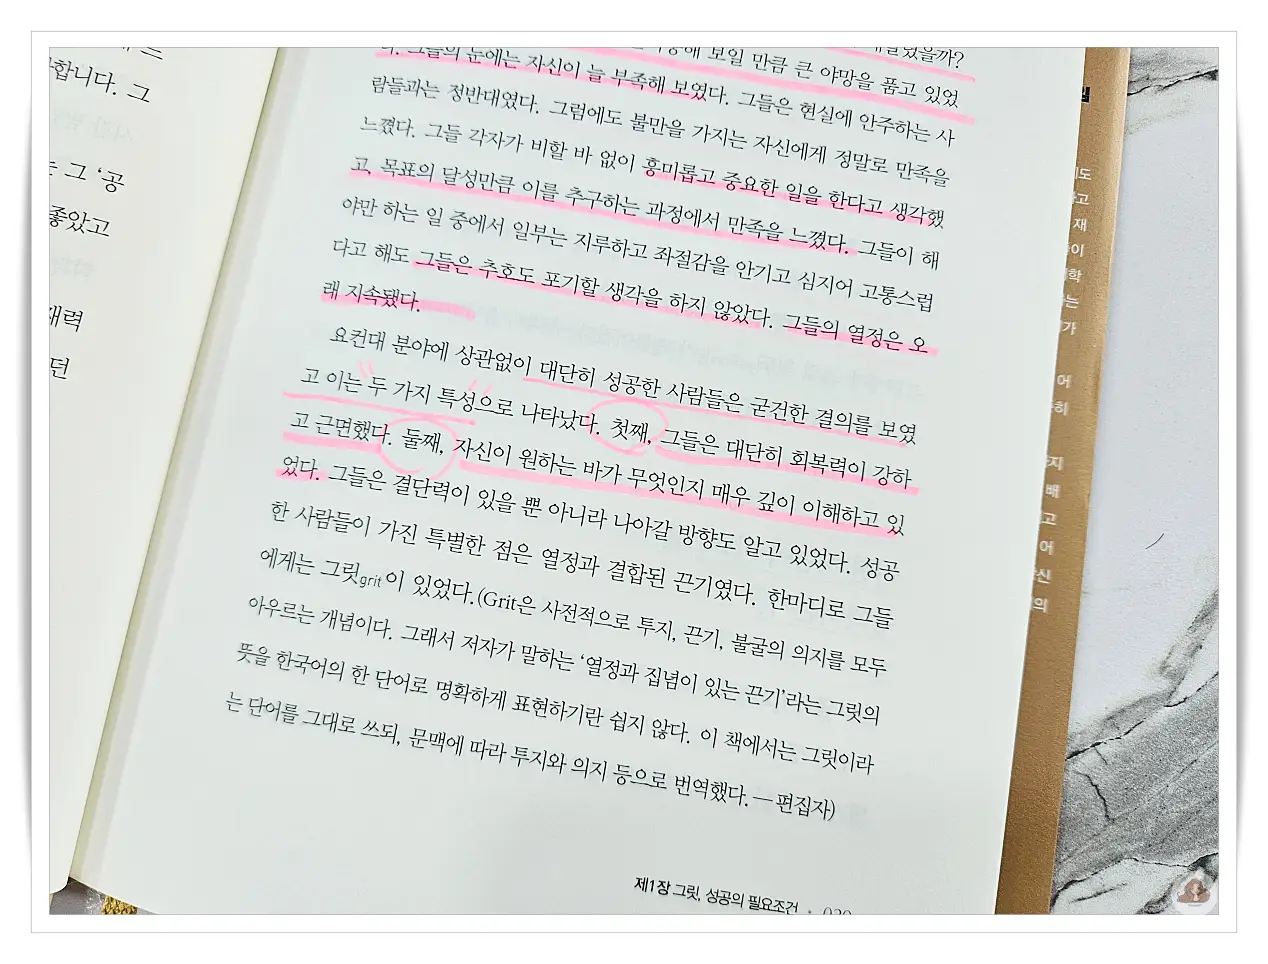 합니다. 그
그 ‘공
좋았고
재력
던
보일 만큼 큰 야망을 품고 있었
다. 그들의 눈에는 자신이 늘 부족해 보였다. 그들은 현실에 안주하는 사
람들과는 정반대였다. 그럼에도 불만을 가지는 자신에게 정말로 만족을
느꼈다. 그들 각자가 비할 바 없이 흥미롭고 중요한 일을 한다고 생각했
고, 목표의 달성만큼 이를 추구하는 과정에서 만족을 느꼈다. 그들이 해
야만 하는 일 중에서 일부는 지루하고 좌절감을 안기고 심지어 고통스럽
다고 해도 그들은 추호도 포기할 생각을 하지 않았다. 그들의 열정은 오
래 지속됐다.
요컨대 분야에 상관없이 대단히 성공한 사람들은 굳건한 결의를 보였
고 이는 두 가지 특성으로 나타났다. 첫째, 그들은 대단히 회복력이 강하
고 근면했다. 둘째, 자신이 원하는 바가 무엇인지 매우 깊이 이해하고 있
었다. 그들은 결단력이 있을 뿐 아니라 나아갈 방향도 알고 있었다. 성공
한 사람들이 가진 특별한 점은 열정과 결합된 끈기였다. 한마디로 그들
에게는 그릿grit이 있었다.(Grit은 사전적으로 투지, 끈기, 불굴의 의지를 모두
아우르는 개념이다. 그래서 저자가 말하는 ‘열정과 집념이 있는 끈기’라는 그릿의
뜻을 한국어의 한 단어로 명확하게 표현하기란 쉽지 않다. 이 책에서는 그릿이라
는 단어를 그대로 쓰되, 문맥에 따라 투지와 의지 등으로 번역했다. — 편집자)
제1장 그릿, 성공의 필요조건